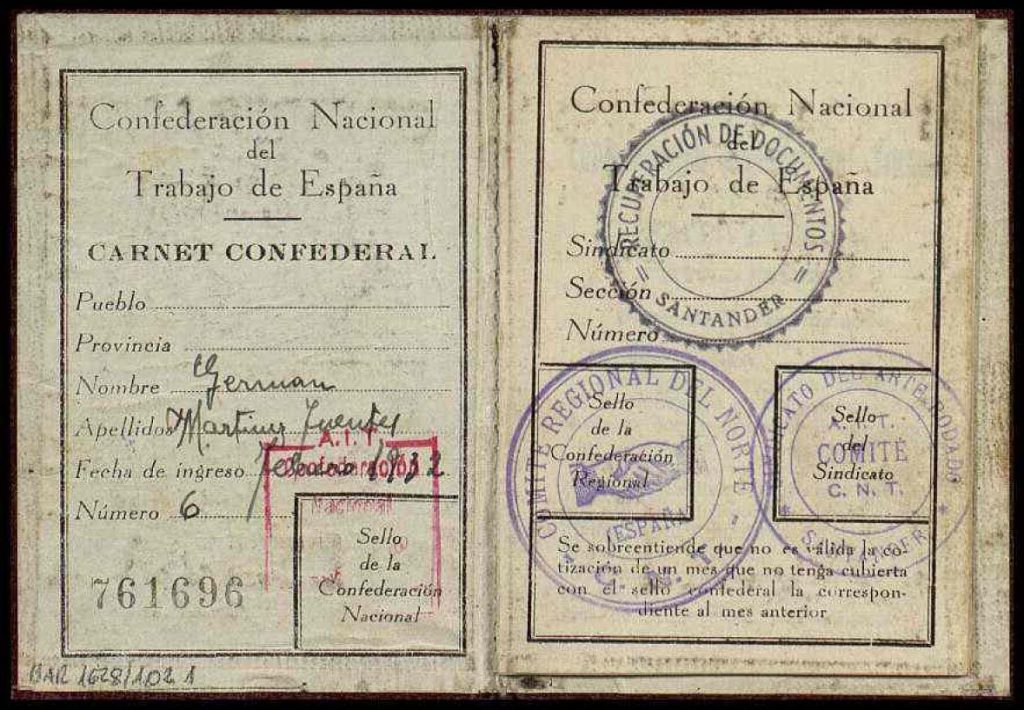 Confederación Nacional
del
Trabajo de España
CARNET CONFEDERAL
Pueblo
Provincia
Nombre German
Apellidos Martinez Fuentes
Fecha de ingreso Febrero 1932
Número 6
A.I.T.
Confederación
Nacional
Sello
de la
Confederación
Nacional
761696
BAR 1628/102 1
Confederación Nacional
del
Trabajo de España
RECUPERACIÓN DE DOCUMENTOS
= SANTANDER =
Sindicato
Sección
Número
COMITÉ REGIONAL DEL NORTE
(ESPAÑA)
C. N. T.
Sello
de la
Confederación
Regional
SINDICATO DEL ARTE RODADO
A. I. T.
COMITÉ
C. N. T.
* SANTANDER *
Sello
del
Sindicato
Se sobreentiende que no es válida la co-
tización de un mes que no tenga cubierta
con el sello confederal la correspon-
diente al mes anterior